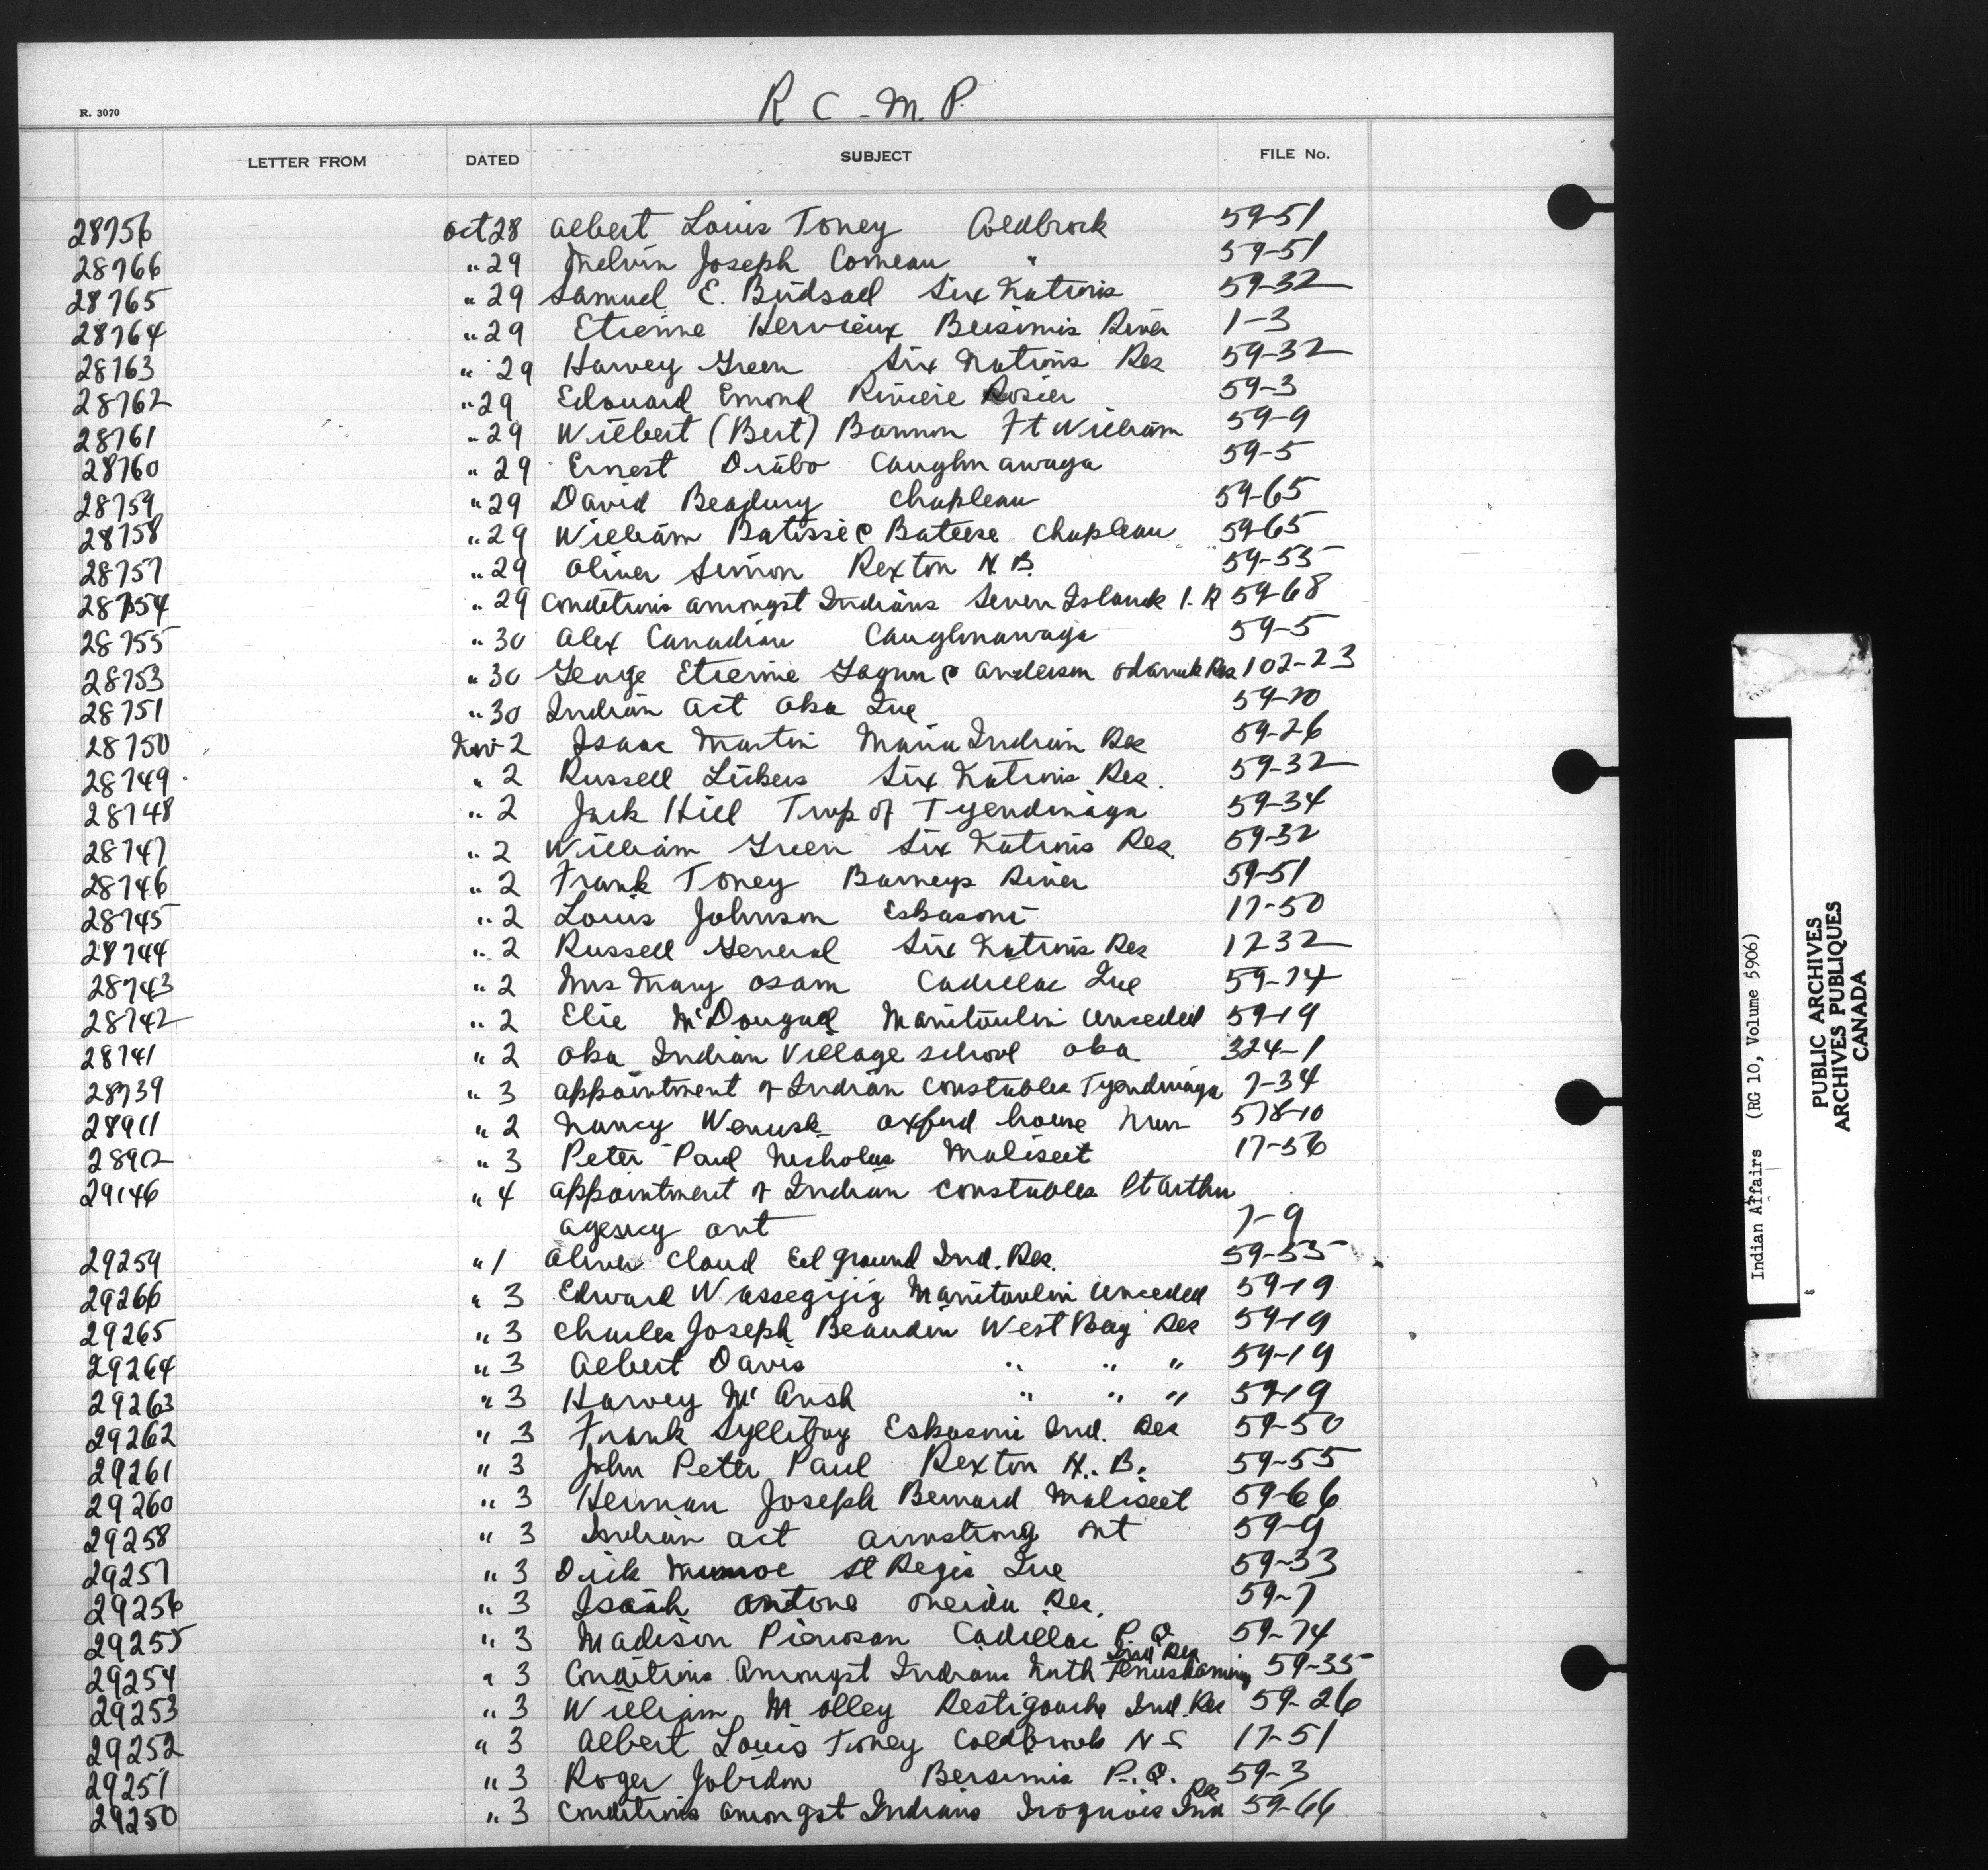 R C - M. P.
R. 3070
LETTER FROM DATED SUBJECT FILE No.
28756 Oct 28 Albert Louis Toney Coldbrook 59-51
28766 " 29 Melvin Joseph Comeau " 59-51
28765 " 29 Samuel E. Birdsall Six Nations 59-32
28764 " 29 Etienne Hervieux Bersimis River 1-3
28763 " 29 Harvey Green Six Nations Res 59-32
28762 " 29 Edouard Emond Riviere Rosier 59-3
28761 " 29 Wilbert (Bert) Bannon Ft William 59-9
28760 " 29 Ernest Diabo Caughnawaga 59-5
28759 " 29 David Chapleau 59-65
28758 " 29 William Batisse & Bateese Chapleau 59-65
28757 " 29 Oliver Simon Rexton N.B. 59-55
28754 " 29 Conditions amongst Indians Seven Islands I.R 59-68
28755 " 30 Alex Canadian Caughnawaga 59-5
28753 " 30 George Etienne & Anderson Odanak Res 102-23
28751 " 30 Indian Act Oka Que 59-70
28750 Nov 2 Isaac Martin Maria Indian Res 59-26
28749 " 2 Russell Lickers Six Nations Res. 59-32
28748 " 2 Jack Hill Twp of Tyendinaga 59-34
28747 " 2 William Green Six Nations Res. 59-32
28746 " 2 Frank Toney Barneys River 59-51
28745 " 2 Louis Johnson Eskasoni 17-50
28744 " 2 Russell General Six Nations Res 17-32
28743 " 2 Mrs Mary Osam Cadillac Que 59-74
28742 " 2 Elie McDougal Manitoulin Unceded 59-19
28741 " 2 Oka Indian Village school Oka 324-1
28739 " 3 Appointment of Indian Constables Tyendinaga 7-34
28911 " 2 Nancy Wenusk Oxford house Man 578-10
28912 " 3 Peter Paul Nicholas Maliseet 17-56
29146 " 4 Appointment of Indian Constables Pt Arthur
agency Ont 7-9
29259 " 1 Oliver Cloud Eel ground Ind. Res. 59-53
29266 " 3 Edward Wassegijig Manitoulin Unceded 59-19
29265 " 3 Charles Joseph Beaudin West Bay Res 59-19
29264 " 3 Albert Davis " " " 59-19
29263 " 3 Harvey Mc " " " 59-19
29262 " 3 Frank Sylliboy Eskasoni Ind. Res 59-50
29261 " 3 John Peter Paul Rexton N.B. 59-55
29260 " 3 Herman Joseph Bernard Maliseet 59-66
29258 " 3 Indian Act Armstrong Ont 59-9
29257 " 3 Dick Munroe St Regis Que 59-33
29256 " 3 Isaah Antone Oneida Res. 59-7
29255 " 3 Madison Cadillac P.Q. 59-74
29254 " 3 Conditions Amongst Indians North Temiskaming Ind Res 59-35
29253 " 3 William Molley Restigouche Ind. Res 59-26
29252 " 3 Albert Louis Toney Coldbrook N S 17-51
29251 " 3 Roger Jobidon Bersimis P.Q. 59-3
29250 " 3 Conditions amongst Indians Iroquois Ind Res 59-66
Indian Affairs (RG 10, Volume 5906)
PUBLIC ARCHIVES
ARCHIVES PUBLIQUES
CANADA